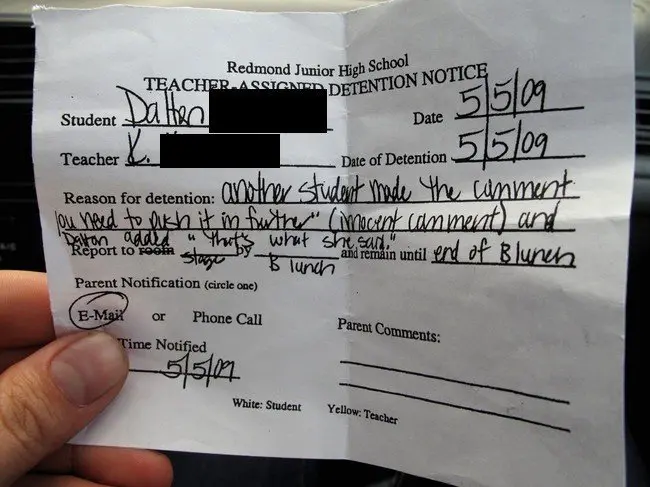 Redmond Junior High School
TEACHER-ASSIGNED DETENTION NOTICE
Student Dalton Date 5/5/09
Teacher K. Date of Detention 5/5/09
Reason for detention: another student made the comment
you need to push it in further" (innocent comment) and
Dalton added "that's what she said."
Report to room stage by B lunch and remain until end of B lunch
Parent Notification (circle one)
E-Mail or Phone Call Parent Comments:
Time Notified
5/5/09
White: Student Yellow: Teacher